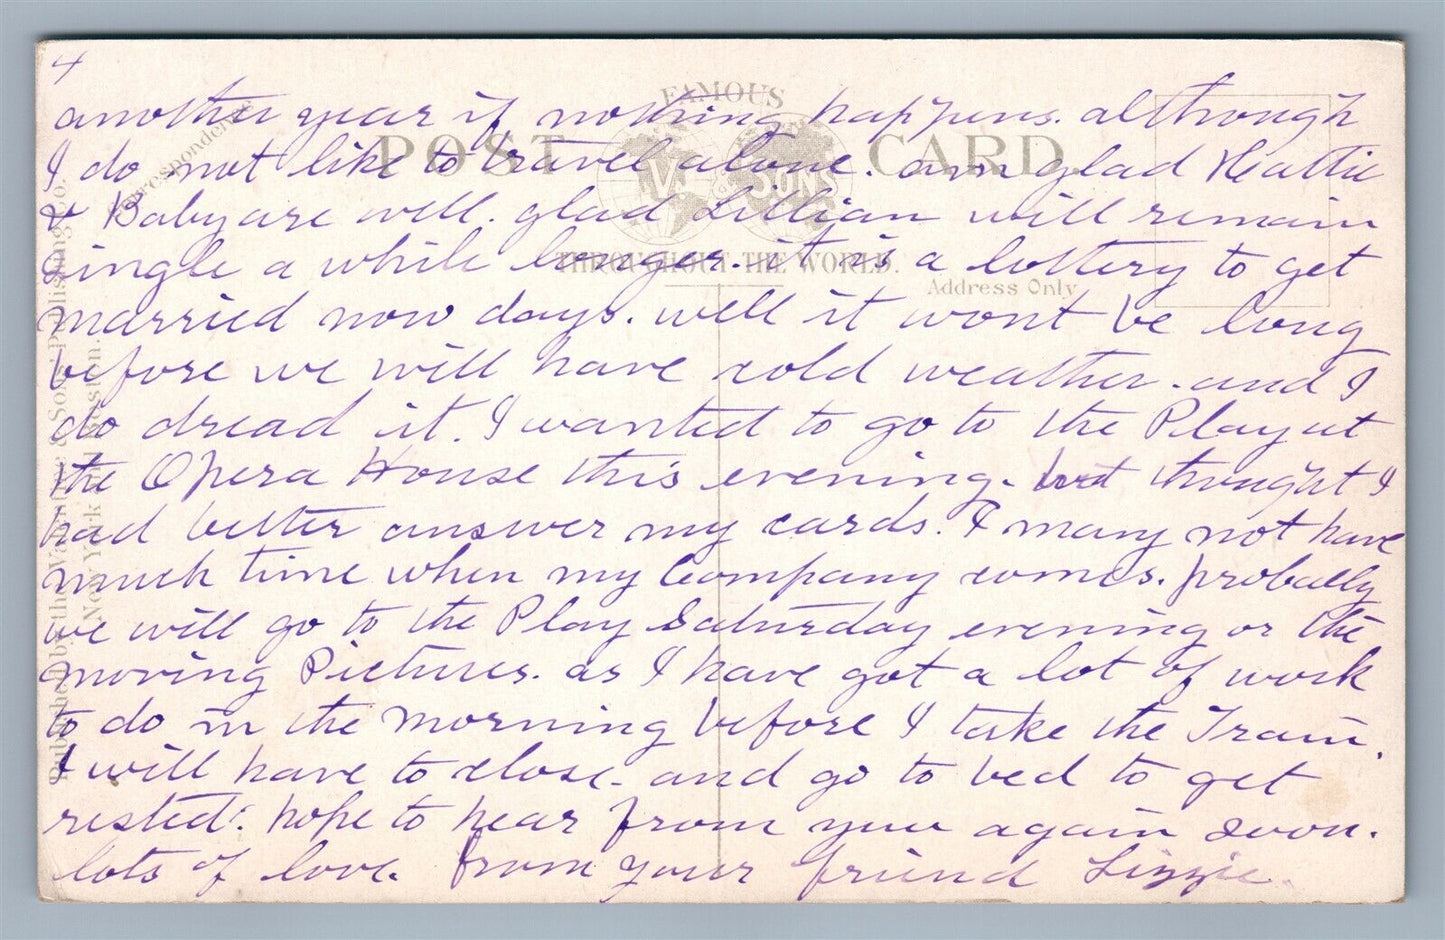 4
another year if nothing happens. although
I do not like to travel alone. am glad Hattie
& Baby are well. glad Lillian will remain
single a while longer. it is a lottery to get
married now days. well it wont be long
before we will have cold weather. and I
do dread it. I wanted to go to the Play at
the Opera House this evening. but thought I
had better answer my cards. I many not have
much time when my Company comes. probally
we will go to the Play Saturday evening or the
moving Pictures. as I have got a lot of work
to do in the morning before I take the Train.
I will have to close. and go to bed to get
rested. hope to hear from you again soon.
lots of love. from your friend Lizzie.
FAMOUS
POST CARD.
V. & SONS
THROUGHOUT THE WORLD.
Correspondence
Address Only
Published by the Valentine & Sons' Publishing Co.
New York and Boston.